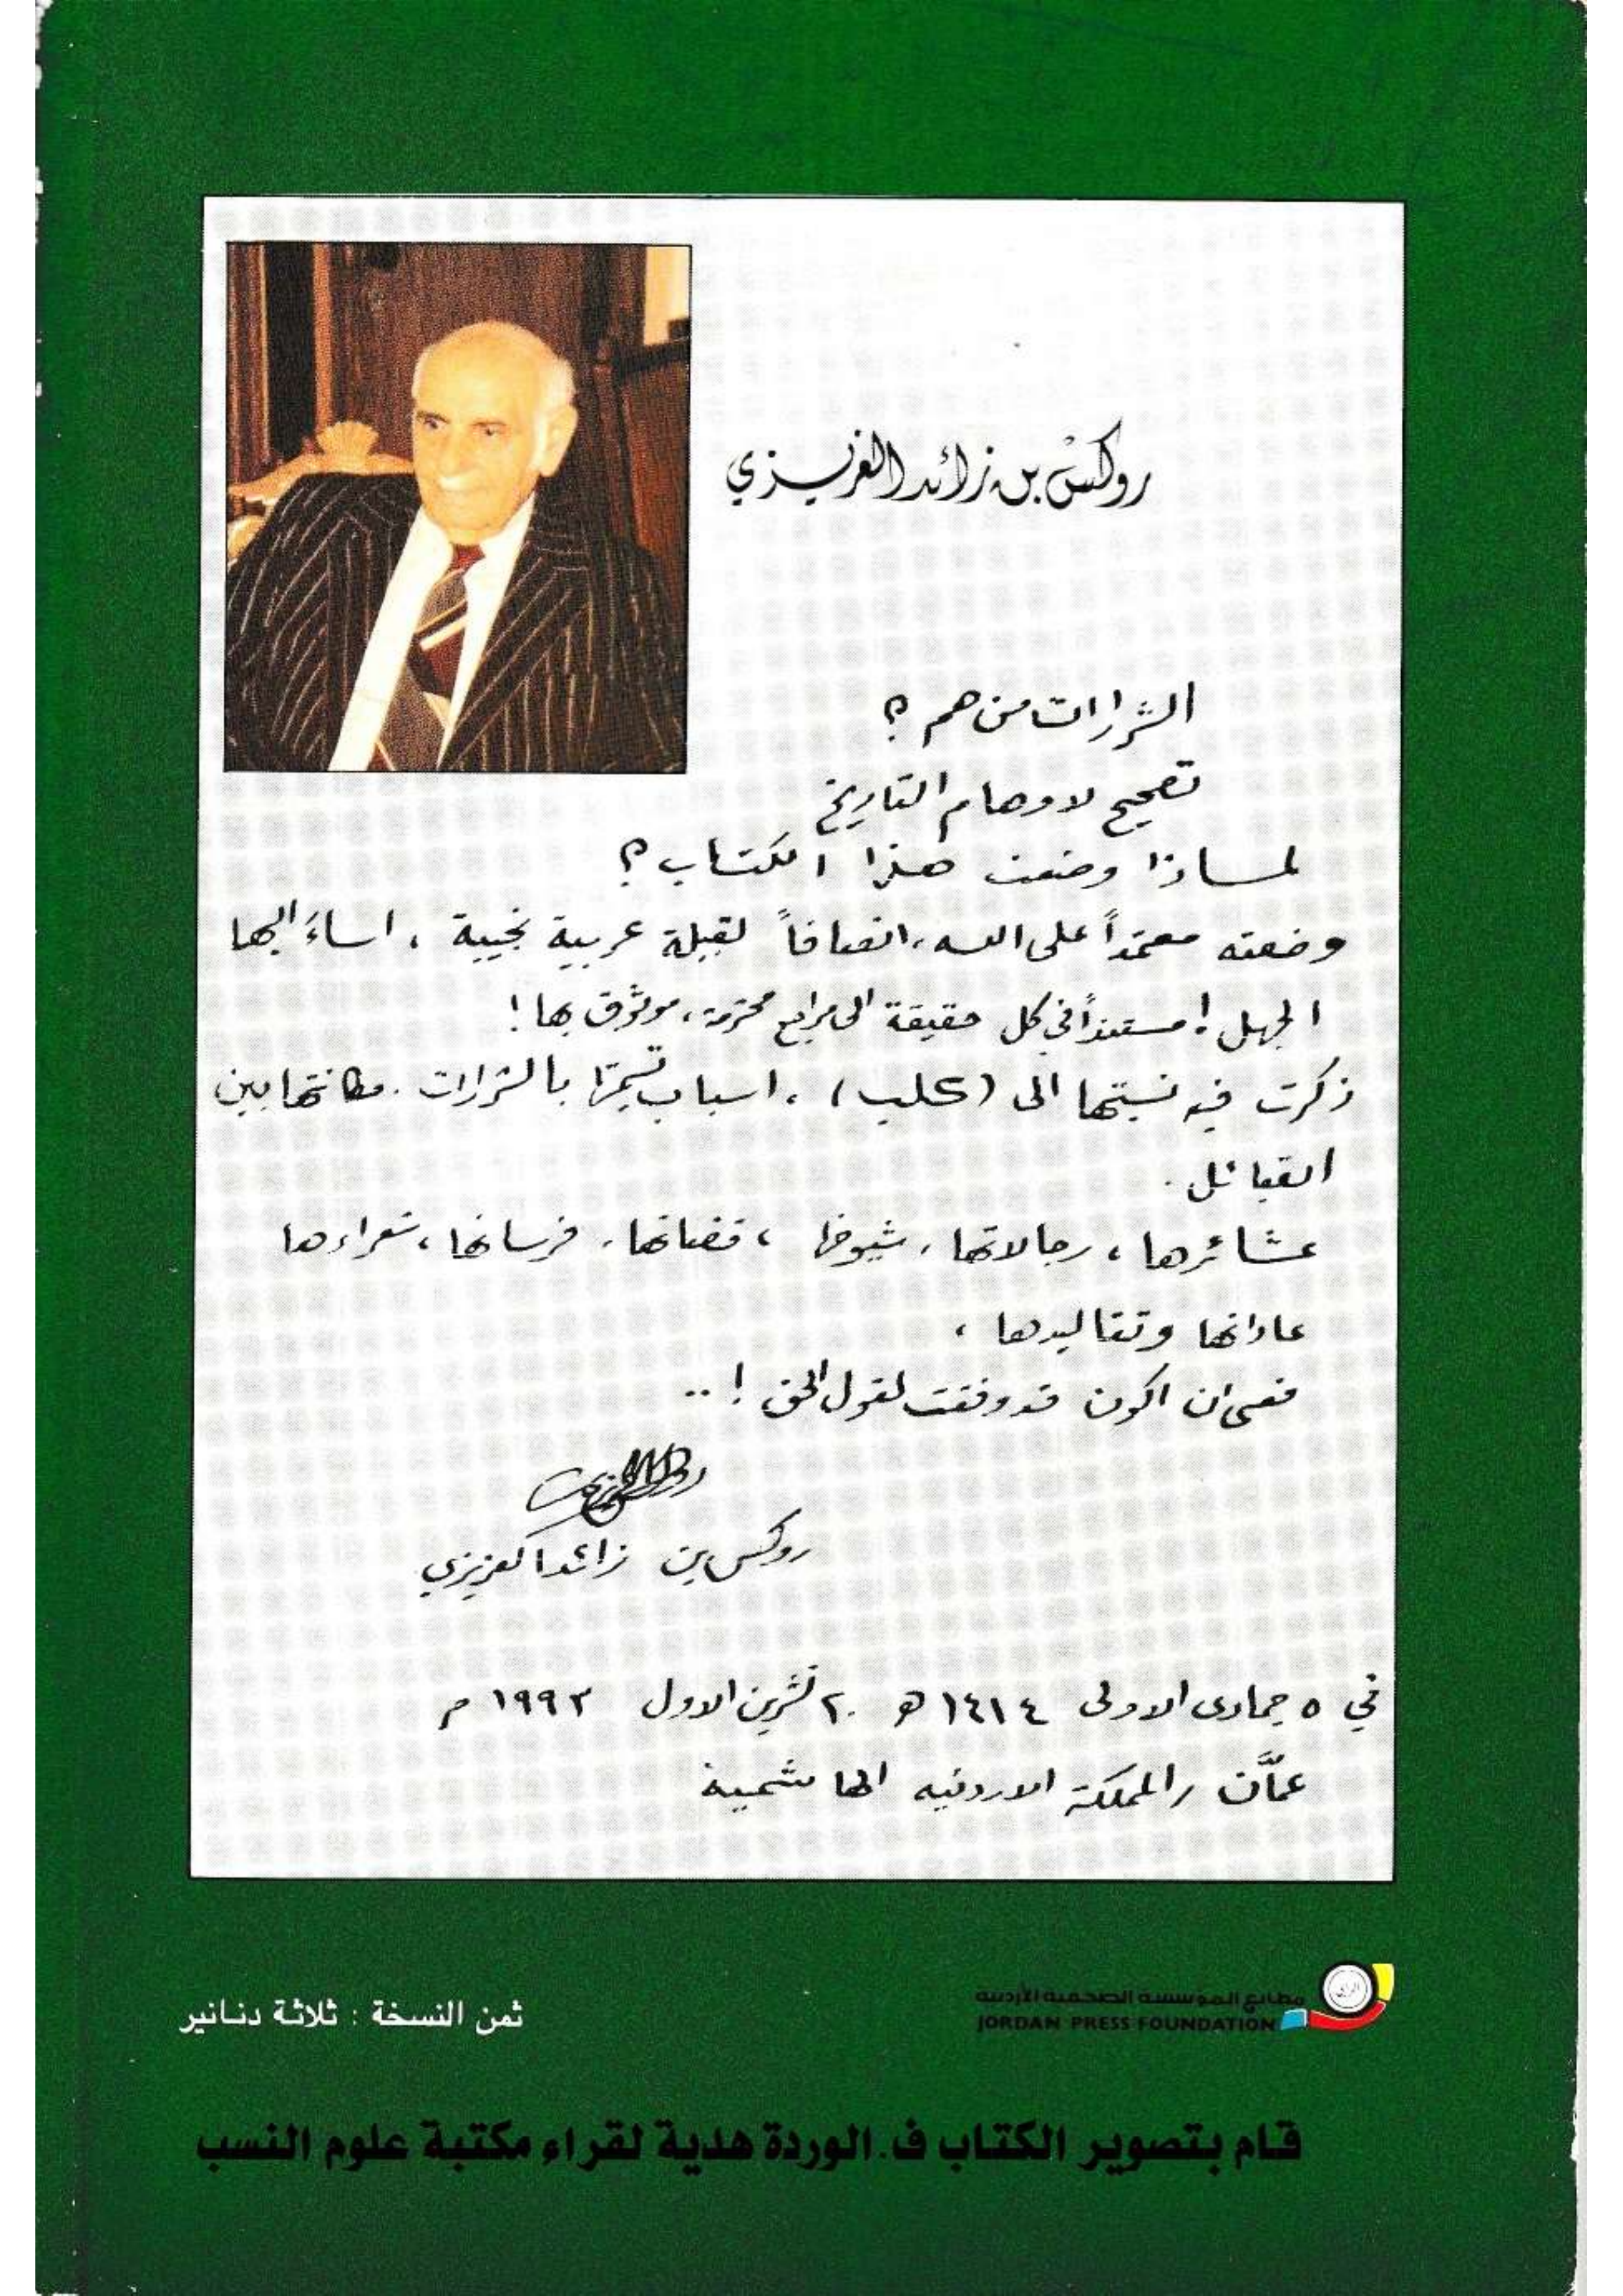 روكس بن زائد العزيزي
الشرارات من هم ؟
تصحيح لاوهام التاريخ
لماذا وضعت هذا الكتاب ؟
وضعته معتمداً على الله ، انصافاً لقبيلة عربية نجيبة ، اساءَ اليها
الجهل ! مستنداً في كل حقيقة الى مراجع محترمة ، موثوق بها !
ذكرت فيه نسبتها الى (كلب) ، اسباب تسميتها بالشرارات . مكانتها بين
القبائل .
عشائرها ، رجالاتها ، شيوخها ، قضاتها ، فرسانها ، شعراءها
عاداتها وتقاليدها ،
فعسى ان اكون قد وفقت لقول الحق ! ..
روكس بن زائد العزيزي
في ٥ جمادى الاولى ١٤١٤ هـ ٢٠ تشرين الاول ١٩٩٣ م
عمَّان / المملكة الاردنيه الهاشمية
مطابع المؤسسة الصحفية الأردنية
JORDAN PRESS FOUNDATION
الرأي
ثمن النسخة : ثلاثة دنانير
قام بتصوير الكتاب ف. الوردة هدية لقراء مكتبة علوم النسب